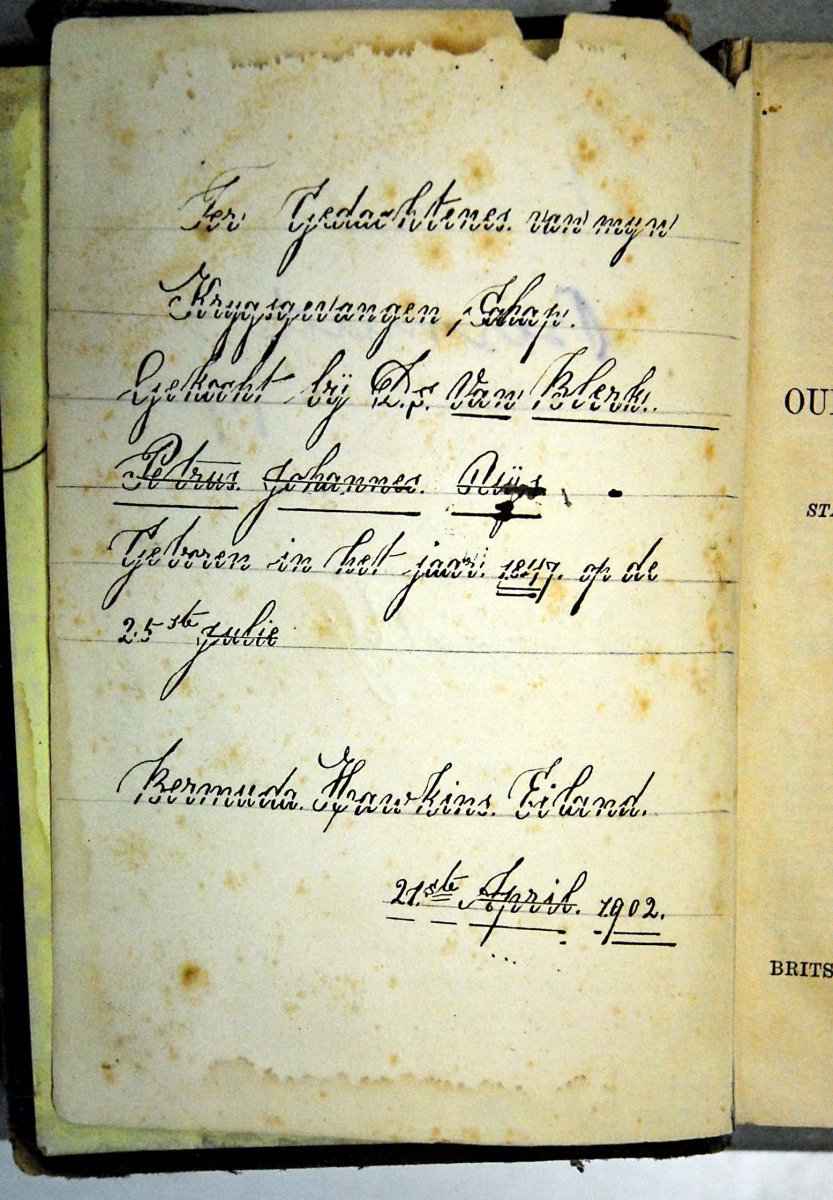 Ter Gedachtenes. van myn
Krygsgevangen Schap.
Gekocht bij D.S. Van Blerk.
Petrus. Johannes.
Geboren in het jaar. 1847. op de
25ste julie
Bermuda. Hawkins. Eiland.
21.ste April. 1902.
OU
STA
BRITS